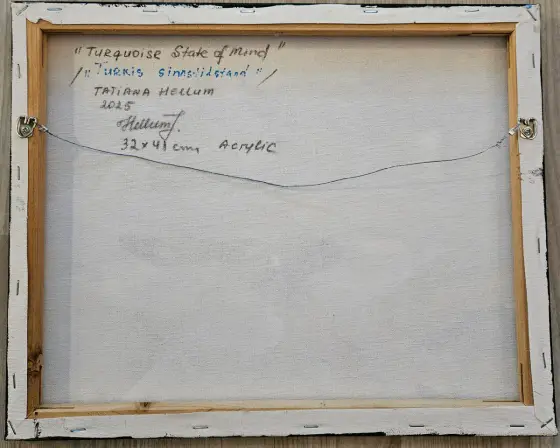 "Turquoise State of Mind"
/"Turkis sinnstilstand"/
TATIANA HELLUM
2025
Hellum T.
32x41 cm, Acrylic